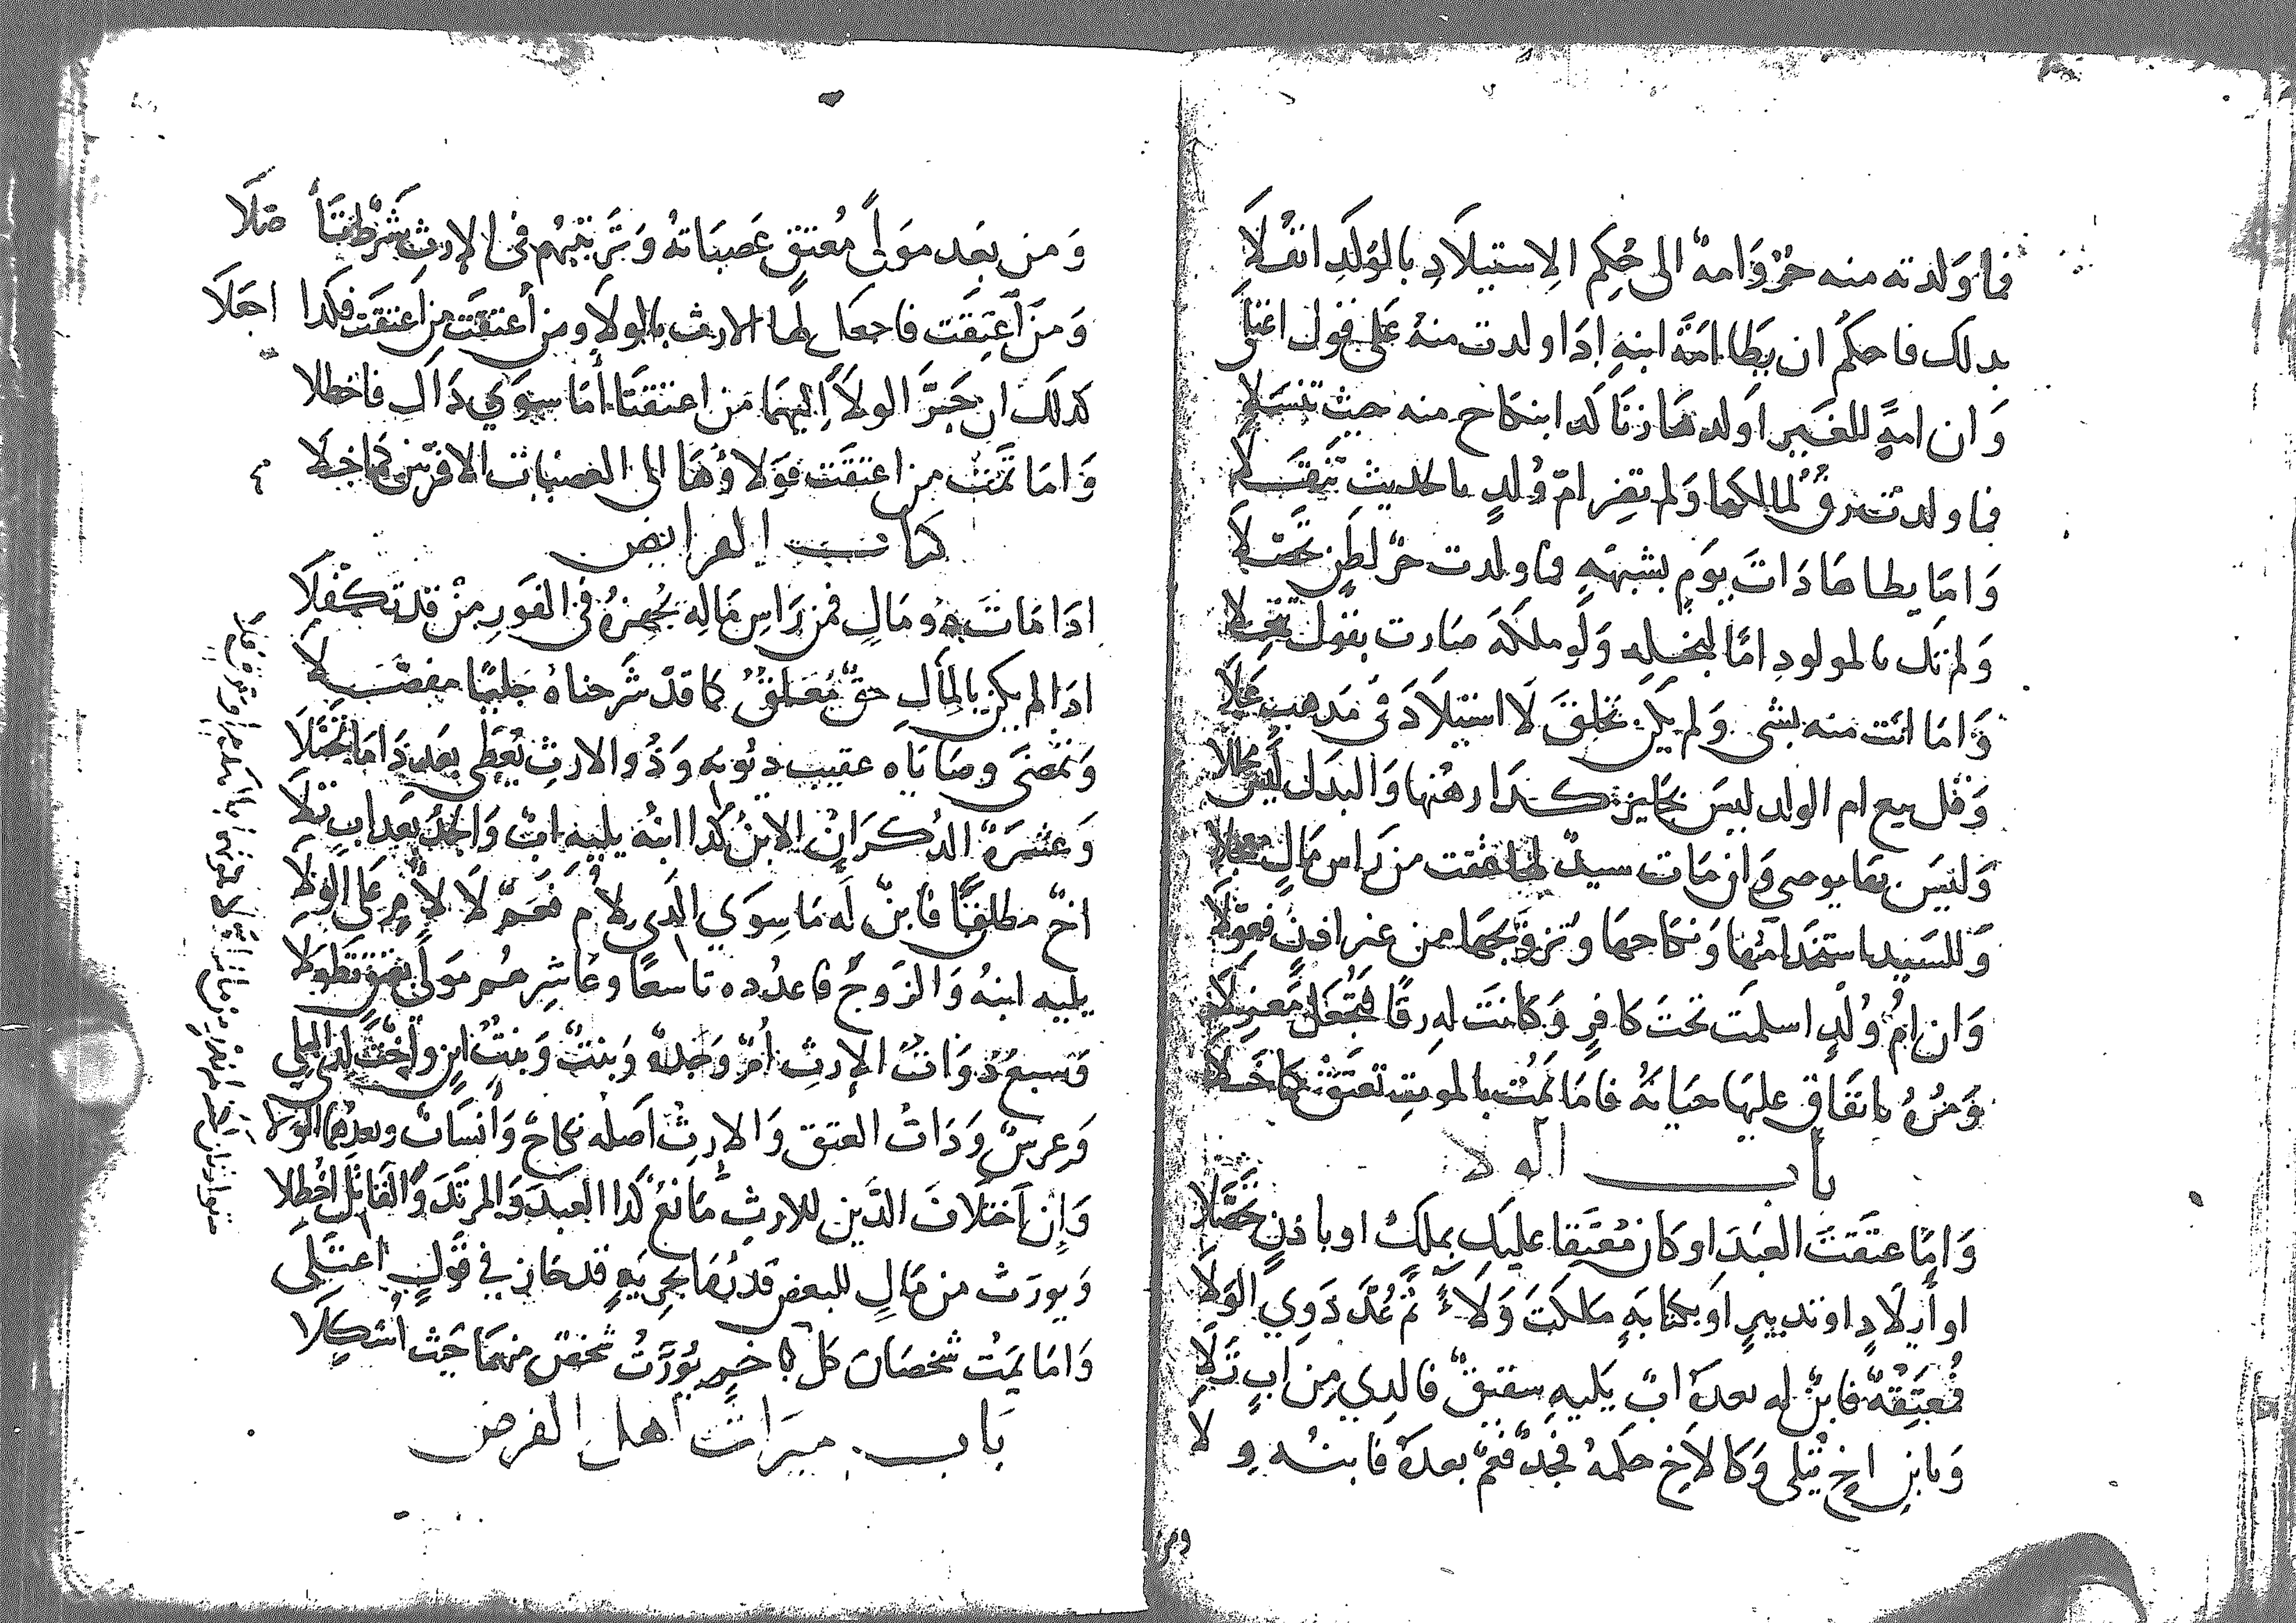 فما ولدته منه حرٌّ وامه الى حكم الاستيلادِ بالولَدِ انقُلَا
بدلك فاحكم ان يطا امَةَ ابنهِ اِدَا ولدت منهُ على قول اعتلَى
وَان امةً للغيرِ اَولدهَا زنًا كدا بنكاح منه حيث تنسلَا
فما ولدت رقٌّ لمالكها ولم تصر امّ وُلدٍ بالحديث تنقلَا
وَامَا يطاهَا دَاتَ يومٍ بشبهَةٍ فما ولدت حرٌّ لظنٍ تحصلَا
وَلم تك بالمولود امًا لنجلهِ وَلو ملكهَ صارت بقول
وَامَا اتت منه بشي وَلم يكن تخلقَ لَا استيلَادَ في مَدهبٍ علَا
وَقل بيع ام الولد ليسَ بجَايز كَدَا رهنها وَالبدَل ليسَ محللَا
وَليسَ بها يوصي وَان مَات سيدٌ لها عتقت من رَاس مَالٍ
وَللسَيد استخدامهَا وَنكاحهَا وَتزويجهَا من غير ادنٍ فعوّلَا
وَان امُّ وُلدٍ اسلمت تحتَ كَافرٍ وَكانتَ له رقًا فتجعَل معزلَا
وَمُرْهُ باتفَاق عليهَا حيَاتهُ فامَا يَمُتْ بالموت تعتق كما خلَا
باب الولا
وَامَا عتقتَ العبدَ او كَان مُعتقا عليكَ بملكٍ او باذنٍ تحصَّلَا
او أيلَادٍ او تدبيرٍ اَو بكتابةٍ ملكتَ وَلَاءً ثم عُدَّ دَوِي الوَلَا
فمُعتِقهُ فابنٌ له بعدهُ ابٌ يليهِ شقيقٌ فالدي من ابٍ تَلَا
وَبابن اخٍ يُتلى وَكالاَخ حكمهُ فجدٌّ فعمٌّ بعدهُ فابنُه وِلا
ومن
وَمن بعد مَولىً مُعتقٍ عَصبَاتهُ وَترتيبهم في الارثِ
وَمَن اعتقت فاجعل لها الارث بالولَا ومن أعتقت من اعتقت فكدا اجعلَا
كدلك ان جَرَّ الولَا إليهَا مَن اعتقتَا أمَا سِوَي دَاكَ فاحظلا
وَامَا تمت من اعتقت فوَلاؤهَا الى العصبَات الاقربين كما خلَا
كتاب الفرايض
ادَا مَات دُو مَالٍ فمن رَاسِ مَالِه يجهزهُ في الفَورِ من قد تكفلَا
ادَا لم يكن بالمَالِ حقٌّ مُعَلقٌ كما قد شرحناهُ جَليًا مفصَّلَا
وَتمضَى وصَايَاه عقيب ديُونه وَدُو الارثِ يُعطَى بعد دَا مَا تحصَّلَا
وَعشرَة الدُكرَانِ الابنُ كدا ابنُه يليه ابٌ وَالجدُ بعد ابٍ تلَا
اخٌ مطلقًا فابنٌ لَه مَا سِوَي الدي لامٍ فعَمٌّ لَا لامٍ عَلى الوِلَا
يليه ابنهُ وَالزوجُ فاعدُده تاسعًا وعَاشِرهُم مَولىً بعتقٍ تطولَا
وَسبعٌ دَوَاتُ الإرثِ أمٌّ وَجدةٌ وَبنتٌ وَبنتُ ابنٍ وأختٌ
وَعرسٌ وَدَاتُ العتق وَالارثُ اَصله نكاحٌ وَأنسَابٌ وبعدهُمَا الولَا
وَإن اَختلَافَ الدين للارثِ مَانعٌ كدَا العبدَ وَالمرتدَ وَالقاتلَ احظلا
وَيورَث من مَالٍ للبعض قدرُهَا بحريةٍ قد حَاز في قولٍ اعتلَى
وَامَا يَمت شخصَان كل بآخرٍ يُوَرَّثُ شخصٌ منهمَا حيث أشكلَا
بَاب ميرَاث اهل الفرض